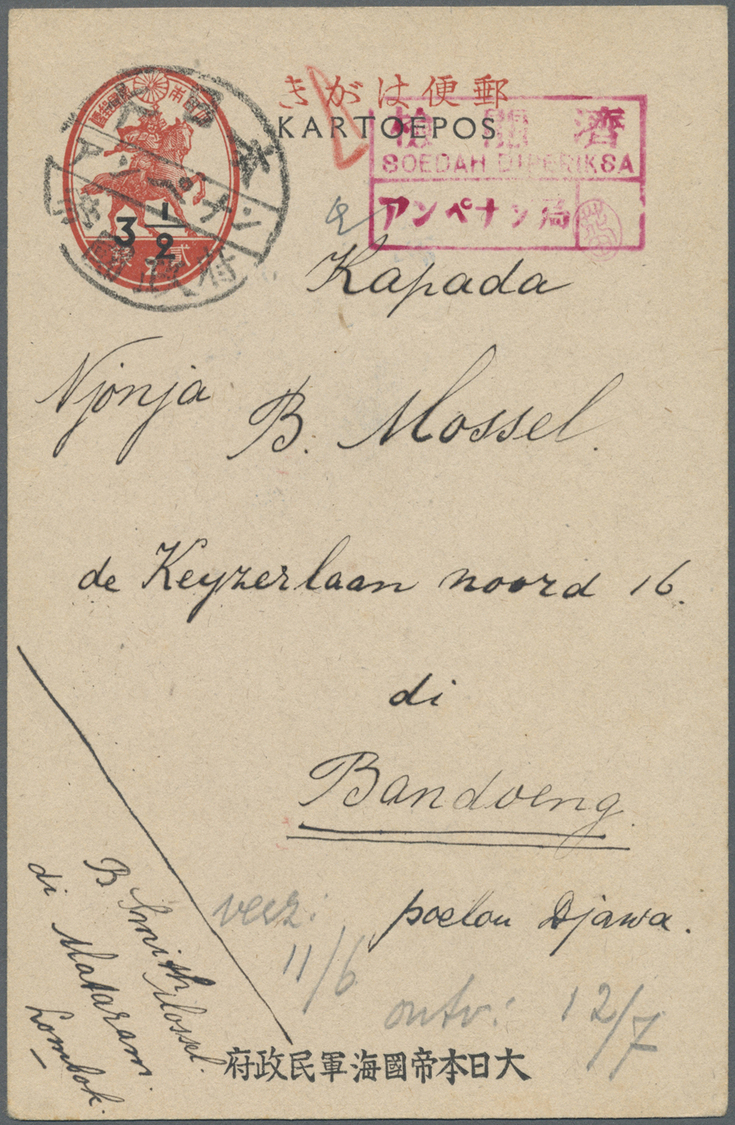 郵便はがき
KARTOEPOS
檢閲濟
SOEDAH DIPERIKSA
アンペナン局
3 1/2
Kapada
Njonja B. Mossel.
de Keyzerlaan noord 16.
di
Bandoeng.
poelou Djawa.
verz:
11/6
ontv.: 12/7
B Smith Mossel.
di Mataram.
Lombok.
大日本帝國海軍民政府